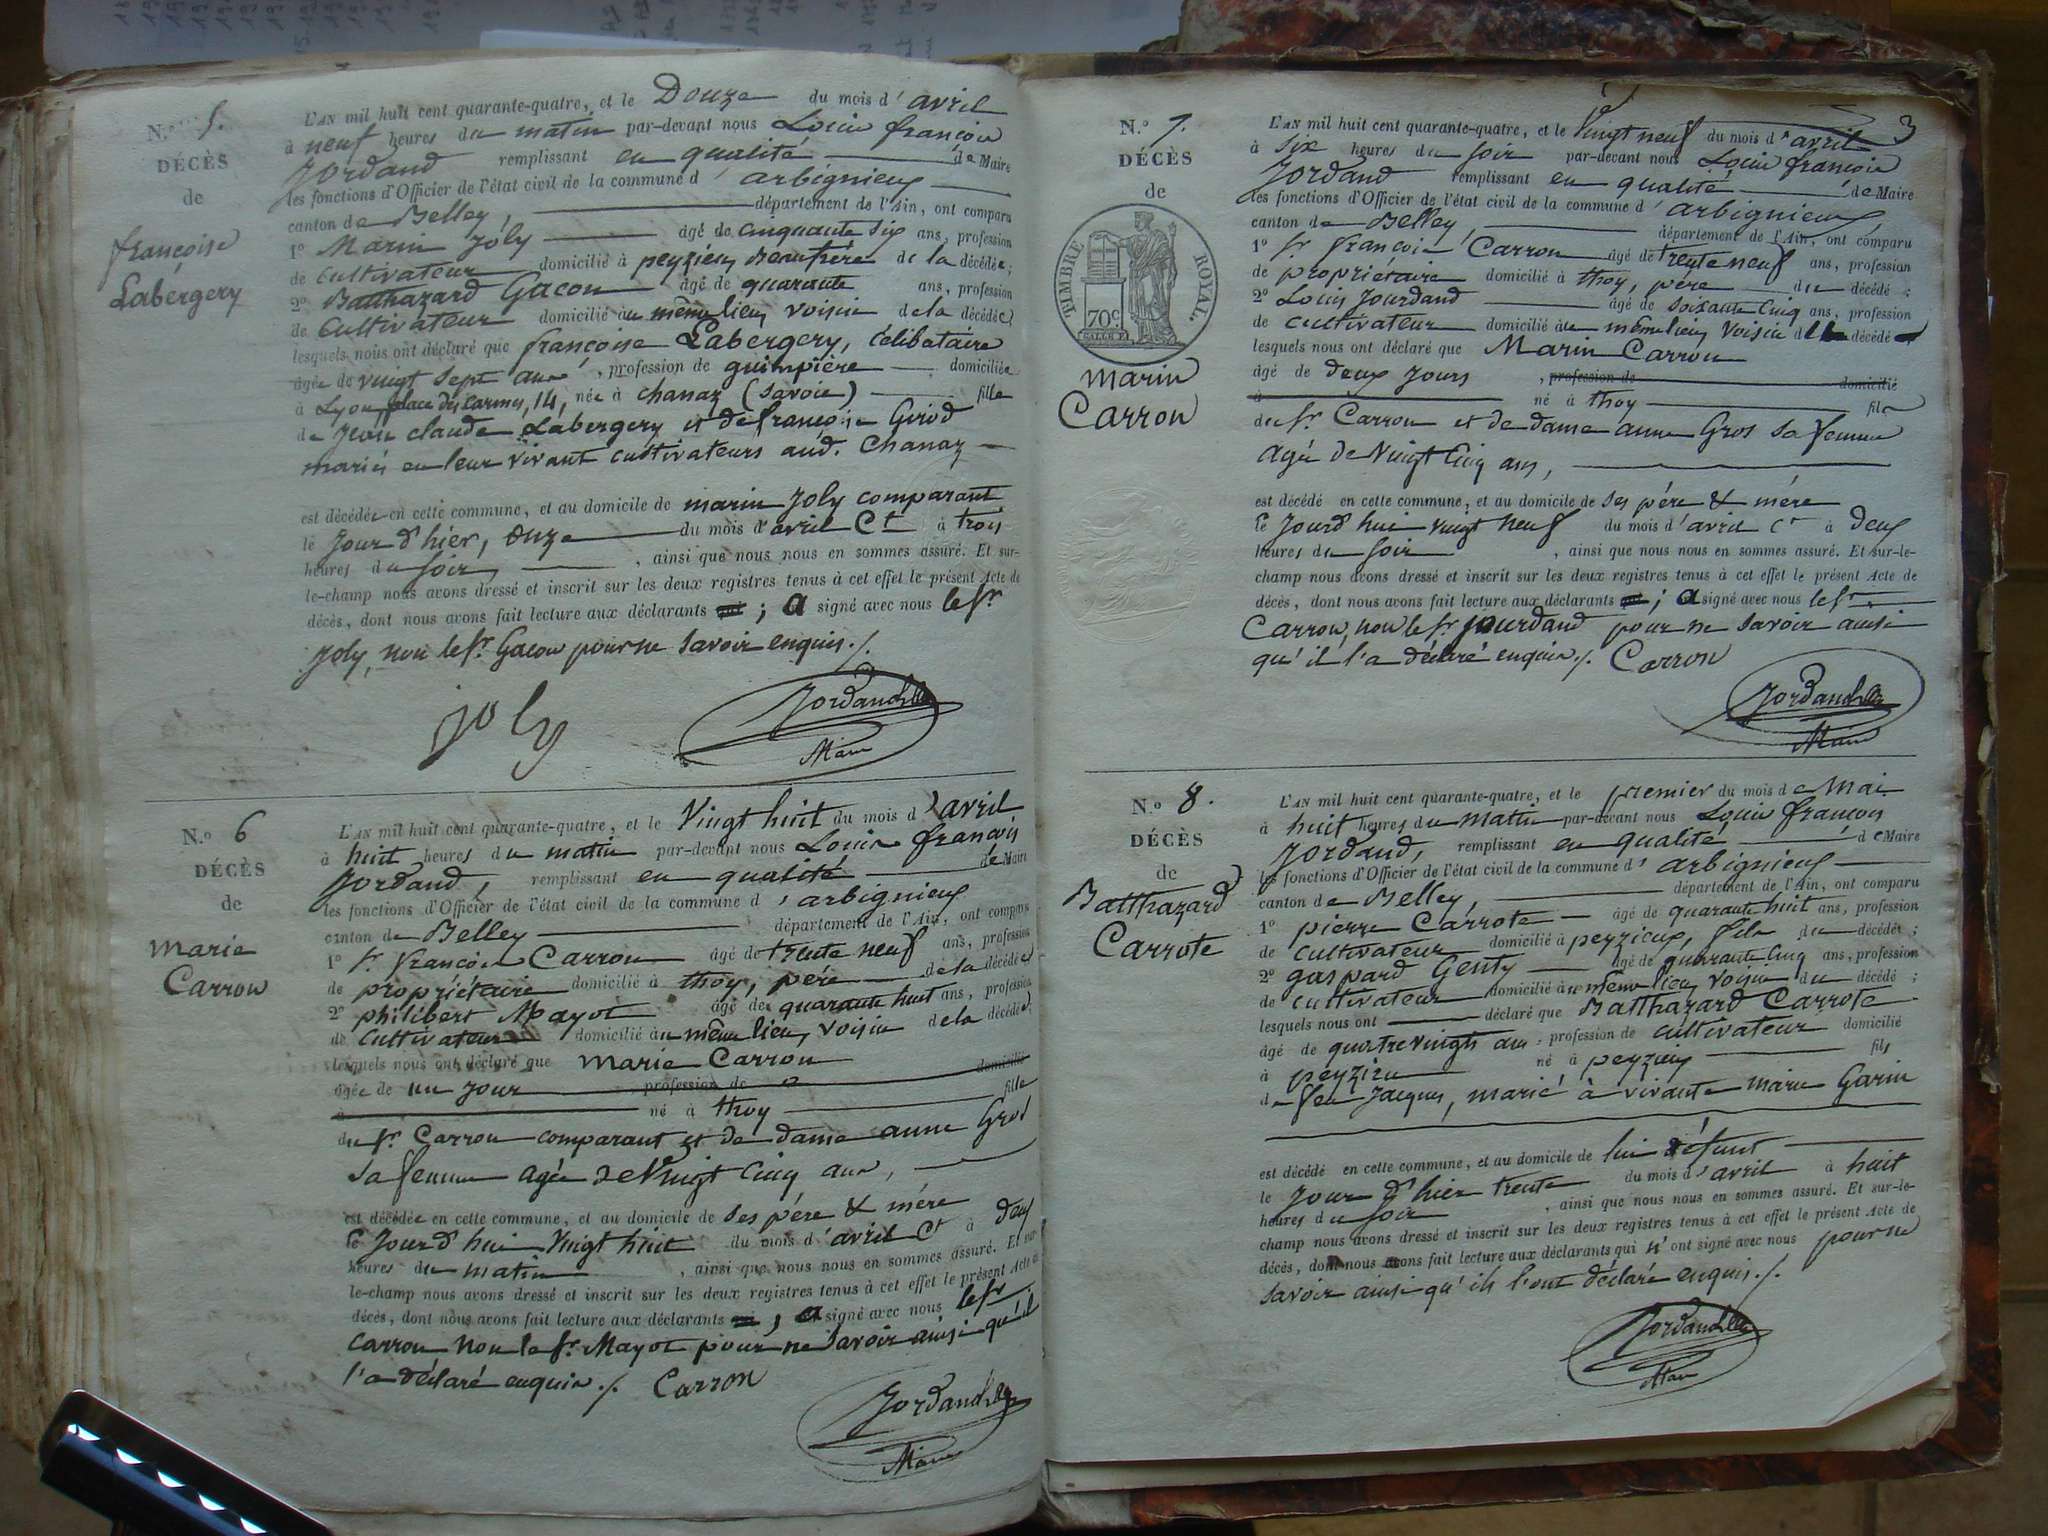 N.º 5.
DÉCÈS
de
françoise
Labergery
L'AN mil huit cent quarante-quatre, et le Douze du mois d' avril
à neuf heures du matin par-devant nous Louis françois
Jordand remplissant en qualité de Maire
les fonctions d'Officier de l'état civil de la commune d' arbignieux
canton de Belley, département de l'Ain, ont comparu
1º Marin Joly âgé de cinquante six ans, profession
de cultivateur domicilié à peyzieu, beaufrère de la décédée;
2º Balthazard Gacon âgé de quarante ans, profession
de cultivateur domicilié au même lieu, voisin de la décédée
lesquels nous ont déclaré que françoise Labergery, célibataire
âgée de vingt sept ans, profession de guimpière domiciliée
à Lyon place des carmes, 14, née à chanaz (savoie) fille
de Jean claude Labergery et de françoise Girod
mariés en leur vivant cultivateurs aud. Chanaz
est décédée en cette commune, et au domicile de marin Joly comparant
le Jour d'hier, onze du mois d'avril Ct à trois
heures du soir, ainsi que nous nous en sommes assuré. Et sur-
le-champ nous avons dressé et inscrit sur les deux registres tenus à cet effet le présent Acte de
décès, dont nous avons fait lecture aux déclarants ; a signé avec nous le Sr
Joly, non le Sr. Gacon pour ne savoir enquis ./.
joly
Jordand
Maire
N.º 6
DÉCÈS
de
marie
Carron
L'AN mil huit cent quarante-quatre, et le Vingt huit du mois d'avril
à huit heures du matin par-devant nous Louis françois
Jordand, remplissant en qualité de Maire
les fonctions d'Officier de l'état civil de la commune d'arbignieux
canton de Belley département de l'Ain, ont comparu
1º Sr françois Carron âgé de trente neuf ans, profession
de propriétaire domicilié à thoy, père de la décédée
2º philibert Mayot âgé de quarante huit ans, profession
de cultivateur domicilié au même lieu, voisin de la décédée
lesquels nous ont déclaré que marie Carron
âgée de un jour profession de domicilié
à né à thoy fille
du Sr Carron comparant et de dame anne Gros
sa femme agée de Vingt cinq ans,
est décédée en cette commune, et au domicile de ses père & mère
le Jourd'hui vingt huit du mois d'avril Ct à deux
heures du matin, ainsi que nous nous en sommes assuré. Et sur
le-champ nous avons dressé et inscrit sur les deux registres tenus à cet effet le présent Acte de
décès, dont nous avons fait lecture aux déclarants ; a signé avec nous le Sr
Carron non le Sr. Mayot pour ne savoir ainsi qu'il
l'a déclaré enquis ./. Carron
Jordand
Maire
3
N.º 7.
DÉCÈS
de
TIMBRE ROYAL.
70c
marin
Carron
L'AN mil huit cent quarante-quatre, et le Vingt neuf du mois d'avril
à six heures du soir par-devant nous Louis françois
Jordand remplissant en qualité de Maire
les fonctions d'Officier de l'état civil de la commune d'arbignieux
canton de Belley, département de l'Ain, ont comparu
1º Sr françois Carron âgé de trente neuf ans, profession
de propriétaire domicilié à thoy, père du décédé;
2º Louis Jourdand âgé de soixante cinq ans, profession
de cultivateur domicilié au même lieu, voisin du décédé
lesquels nous ont déclaré que Marin Carron
âgé de deux jours, profession de domicilié
à né à thoy fils
du Sr. Carron et de dame anne Gros sa femme
agée de Vingt cinq ans,
est décédé en cette commune, et au domicile de ses père & mère
le Jourd'hui vingt neuf du mois d'avril Ct à deux
heures du soir, ainsi que nous nous en sommes assuré. Et sur-le-
champ nous avons dressé et inscrit sur les deux registres tenus à cet effet le présent Acte de
décès, dont nous avons fait lecture aux déclarants ; a signé avec nous le Sr
Carron, non le Sr. Jourdand pour ne savoir ainsi
qu'il l'a déclaré enquis ./. Carron
Jordand
Maire
N.º 8.
DÉCÈS
de
Balthazard
Carrote
L'AN mil huit cent quarante-quatre, et le premier du mois de Mai
à huit heures du matin par-devant nous Louis françois
Jordand, remplissant en qualité de Maire
les fonctions d'Officier de l'état civil de la commune d'arbignieux
canton de Belley, département de l'Ain, ont comparu
1º pierre Carrote âgé de quarante huit ans, profession
de cultivateur domicilié à peyzieux, fils du décédé;
2º gaspard Genty âgé de quarante cinq ans, profession
de cultivateur domicilié au même lieu, voisin du décédé;
lesquels nous ont déclaré que Balthazard Carrote
âgé de quatre vingts ans, profession de cultivateur domicilié
à peyzieu né à peyzieu fils
de feu Jacques, marié à vivante marie Garin
est décédé en cette commune, et au domicile de lui défunt
le Jour d'hier trente du mois d'avril à huit
heures du soir, ainsi que nous nous en sommes assuré. Et sur-le-
champ nous avons dressé et inscrit sur les deux registres tenus à cet effet le présent Acte de
décès, dont nous avons fait lecture aux déclarants qui n'ont signé avec nous pour ne
savoir ainsi qu'ils l'ont déclaré enquis ./.
Jordand
Maire